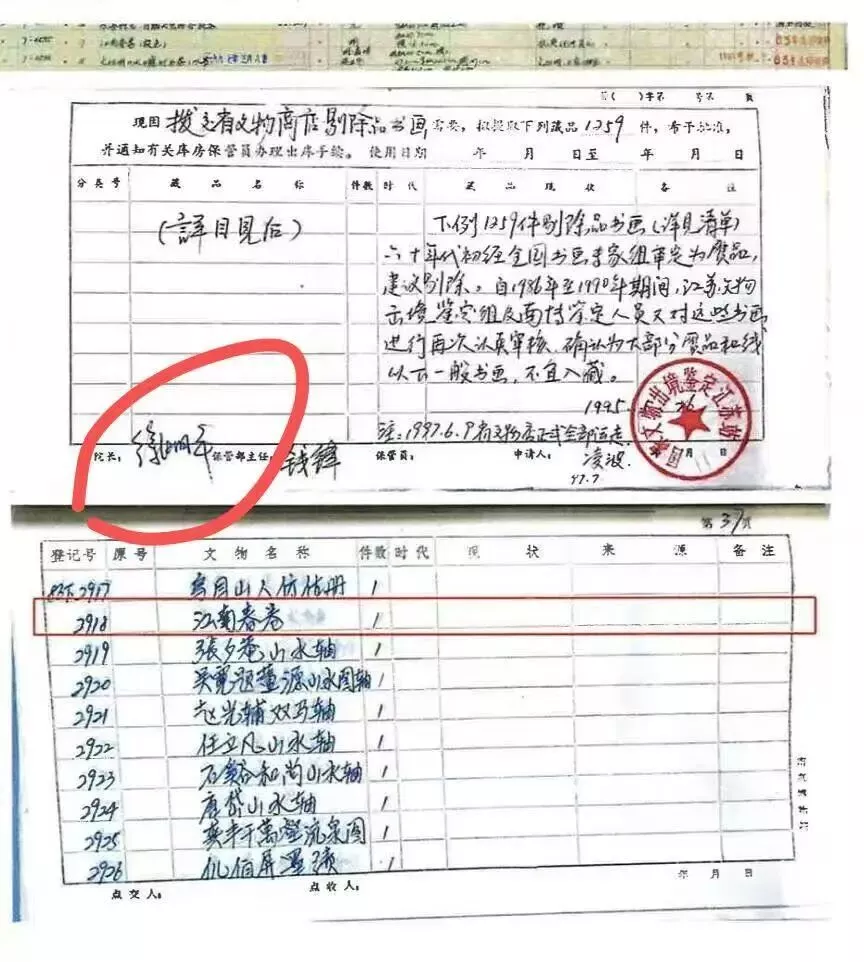 现因 拨交省文物商店剔除品书画 需要，拟提取下列藏品1259件，希予批准，
并通知有关库房保管员办理出库手续。 使用日期 年 月 日至 年 月 日
分类号 藏品名称 件数 时代 藏品现状 备注
(詳目見后)
下列1259件剔除品书画(详见清单)
六十年代初经全国书画专家组审定为赝品，
建议剔除。自1986年至1990年期间，江苏文物
出境鉴定组及南博鉴定人员又对这些书画
进行再次认真审核，确认为大部分赝品和线
以下一般书画，不宜入藏。
1995
月 日
国家文物出境鉴定江苏站
注：1997.6.9省文物店正式全部运走
院长： 徐湖平 保管部主任： 钱锋 保管员： 申请人： 凌波
97.7
第37页
登记号 原号 文物名称 件数 时代 现状 来源 备注
2917 1
2918 江南春卷 1
2919 張夕菴山水轴 1
2920 吴寬题董源山水图轴 1
2921 赵光辅双马轴 1
2922 任立凡山水轴 1
2923 石谿和尚山水轴 1
2924 唐岱山水轴 1
2925 龚半千萬壑流泉图 1
2926 1
点交人： 点收人： 年 月 日